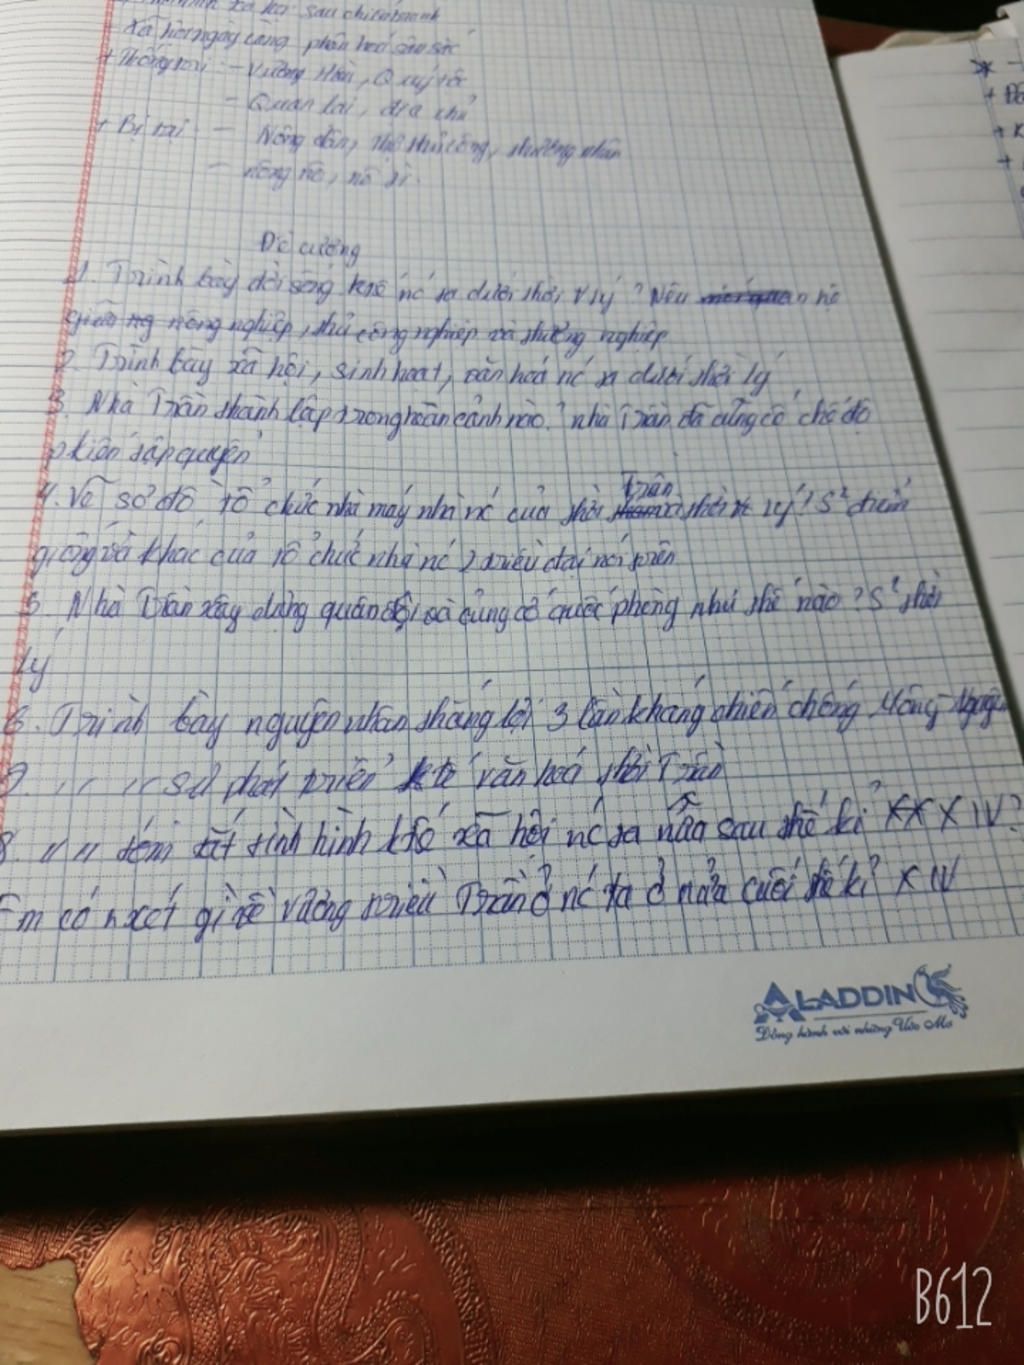 xã hội sau chiến tranh
- Xã hội ngày càng phân hoá sâu sắc
+ Thống trị: - Vương Hầu, Quý tộc
- Quan lại, địa chủ
+ Bị trị: - Nông dân, thợ thủ công, thương nhân
- nông nô, nô tì.
Đề cương
1. Trình bày đời sống ktế nc ta dưới thời lý? Nêu
nông nghiệp, thủ công nghiệp và thương nghiệp
2. Trình bày xã hội, sinh hoạt, văn hoá nc ta dưới thời lý
3. Nhà Trần thành lập trong hoàn cảnh nào? nhà Trần đã củng cố chế độ
pkiến tập quyền
4. Vẽ sơ đồ tổ chức nhà máy nhà nc của thời Trần và thời lý? S² điểm
giống và khác của tổ chức nhà nc 2 triều đại nói trên
5. Nhà Trần xây dựng quân đội và củng cố quốc phòng như thế nào? S² thời
lý
6. Trình bày nguyên nhân thắng lợi 3 lần kháng chiến chống Mông-Nguyên
7. " " sự phát triển ktế văn hoá thời Trần
8. " " tóm tắt tình hình ktế xã hội nc ta nửa sau thế kỉ XIV?
Em có nxét gì về vương triều Trần ở nc ta ở nửa cuối thế kỉ XIV
ALADDIN
Đồng hành với những Ước Mơ
* -
+ K
+
B612